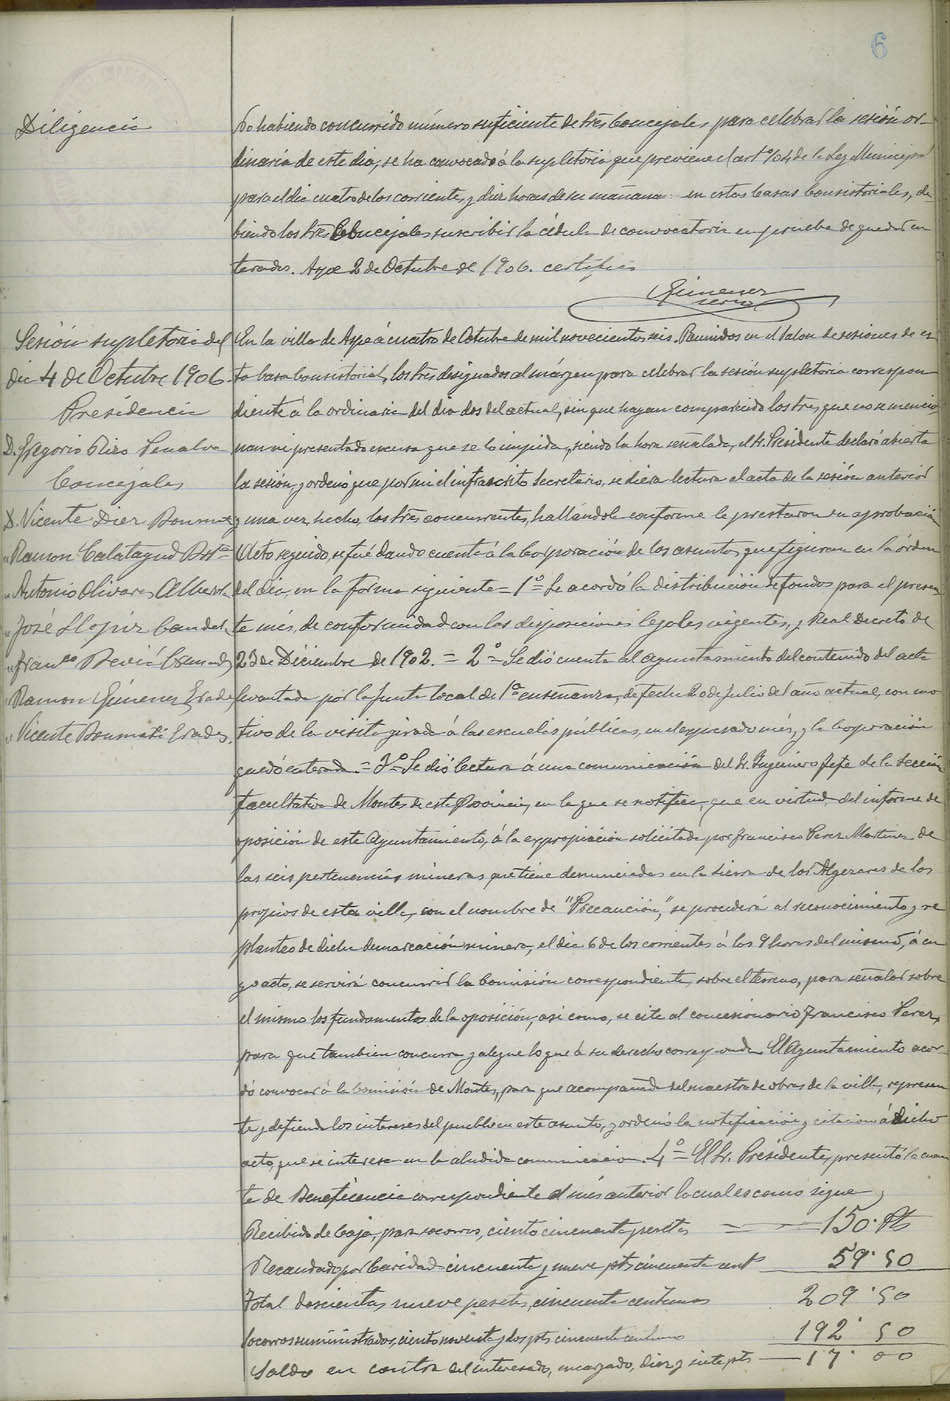 6
Diligencia
No habiendo concurrido número suficiente de Sres Concejales para celebrar la sesión or-
dinaria de este dia, se ha convocado á la supletoria que previene el artº 104 de la Ley Municipal
para el dia cuatro de los corrientes, y diez horas de su mañana en estas Casas Consistoriales, de-
biendo los Sres Concejales suscribir la cédula de convocatoria en prueba de quedar en-
terados. Aspe 2 de Octubre de 1906. certifico
Gimenez
Sesión supletoria del
dia 4 de Octubre 1906.
Presidencia
D. Gregorio Rizo Penalva
Concejales
D. Vicente Diez Bonmati
" Ramon Calatayud
" Antonio Olivares Albert
" José Llopiz Candel
" Franco Bevia
" Ramon Gimenez Erades
" Vicente Bonmati Erades
En la villa de Aspe á cuatro de Octubre de mil novecientos seis. Reunidos en el Salon de sesiones de es-
ta Casa Consistorial, los Sres designados al márgen para celebrar la sesión supletoria correspon-
diente á la ordinaria del dia dos del actual, sin que hayan comparecido los Sres que no se mencio-
nan ni presentado excusa que se lo impida, siendo la hora señalada, el Sr. Presidente declaró abierta
la sesión, y ordenó que por mi el infrascrito Secretario, se diera lectura al acta de la sesión anterior
y una vez hecho, los Sres concurrentes, hallándole conforme le prestaron su aprobación
Acto seguido, se fué dando cuenta á la Corporación de los asuntos que figuran en la órden
del dia, en la forma siguiente = 1º = Se acordó la distribución de fondos para el presen-
te més, de conformidad con las disposiciones legales vigentes, y Real Decreto de
23 de Diciembre de 1902. = 2º = Se dió cuenta al ayuntamiento del contenido del acta
levantada por la Junta local de 1ª enseñanza, de fecha 20 de Julio del año actual, con mo-
tivo de la visita girada á las escuelas públicas, en el expresado més, y la Corporación
quedó enterada. = 3º = Se dió lectura á una comunicación del Sr. Ingeniero Jefe de la Sección
facultativa de Montes de esta Provincia, en la que se notifica, que en virtud del informe de
oposición de este Ayuntamiento, á la expropiación solicitada por Francisco Perez Martinez de
las seis pertenencias mineras que tiene denunciadas en la Sierra de los Algezares de los
propios de esta villa, con el nombre de "Precaución," se procederá al reconocimiento y re-
planteo de dicha demarcación minera, el dia 6 de los corrientes á las 9 horas del mismo, á cu-
yo acto, se servirá concurrir la Comisión correspondiente sobre el terreno, para señalar sobre
el mismo los fundamentos de la oposición, asi como, se cite al concesionario Francisco Perez,
para que tambien concurra y alegue lo que á su derecho corresponda. El Ayuntamiento acor-
dó convocar á la Comisión de Montes, para que acompañada del maestro de obras de la villa, represen-
te y defienda los intereses del pueblo en este asunto, y ordenó la notificación y citacion á dicho
acto, que se interesa en la aludida comunicacion. 4º = El Sr. Presidente, presentó la cuen-
ta de Beneficencia correspondiente al més anterior la cual es como sigue
Recibido de Caja, para socorros, ciento cincuenta pesetas 150. Pts
Recaudado por Caridad cincuenta y nueve pts cincuenta cents 59'50
Total doscientas nueve pesetas, cincuenta centimos 209'50
Socorros suministrados, ciento noventa y dos pts cincuenta centimos 192'50
Saldo en contra del interesado, encargado, diez y siete pts 17'00